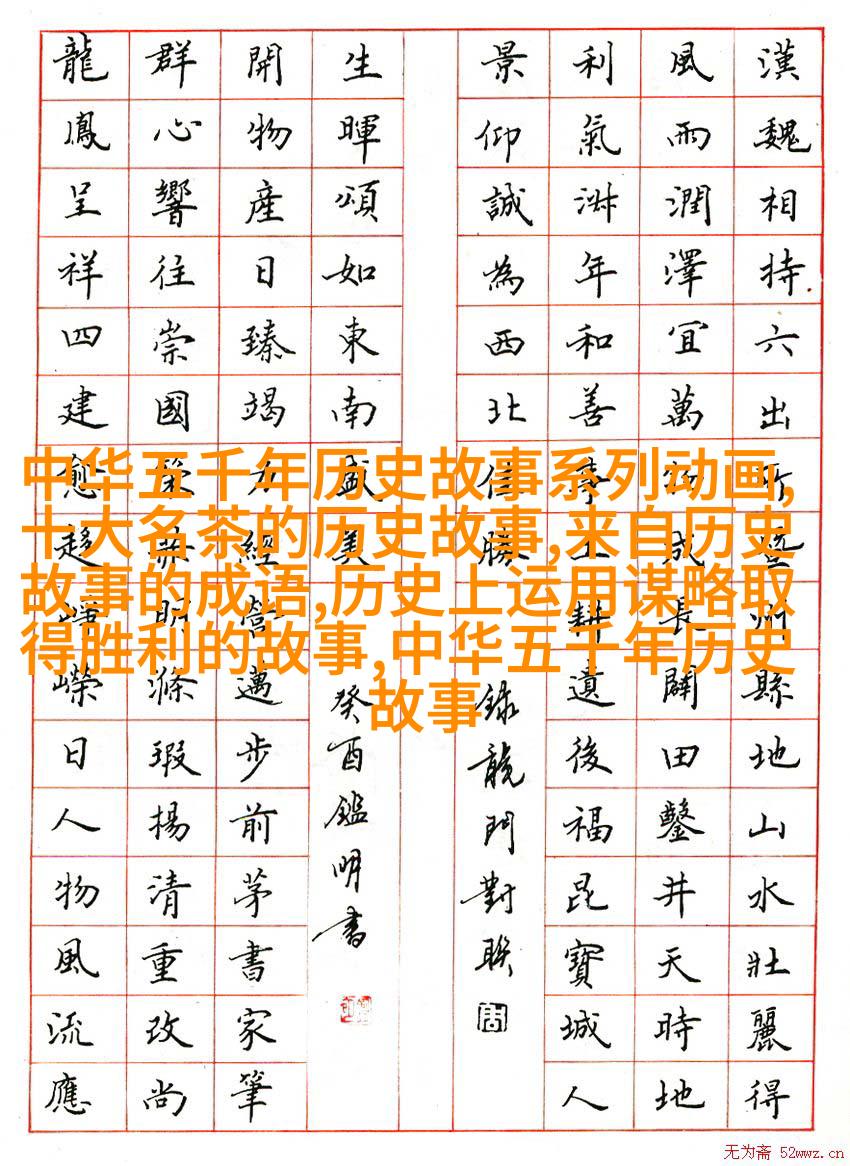 漢魏相持六出暨州縣地山水壯麗得
風雨潤澤宜萬物成長闢田鑿井天時地
利氣年和善耕遺後福昆寶城人
景仰誠為西北勝
錄龍門對聯
生暉頌如東南盛美
癸酉鑑明書
開物產日臻竭力經營邁步前茅書家筆
群心響往崇國策明滌瑕揚清重改尚
龍鳳呈祥四建愈趨崢嶸日人物風流應
中华五千年历史故事系列动画,
十大名茶的历史故事,来自历史
故事的成语,历史上运用谋略取
得胜利的故事,中华五千年历史
故事
无为斋 52wwz.cn